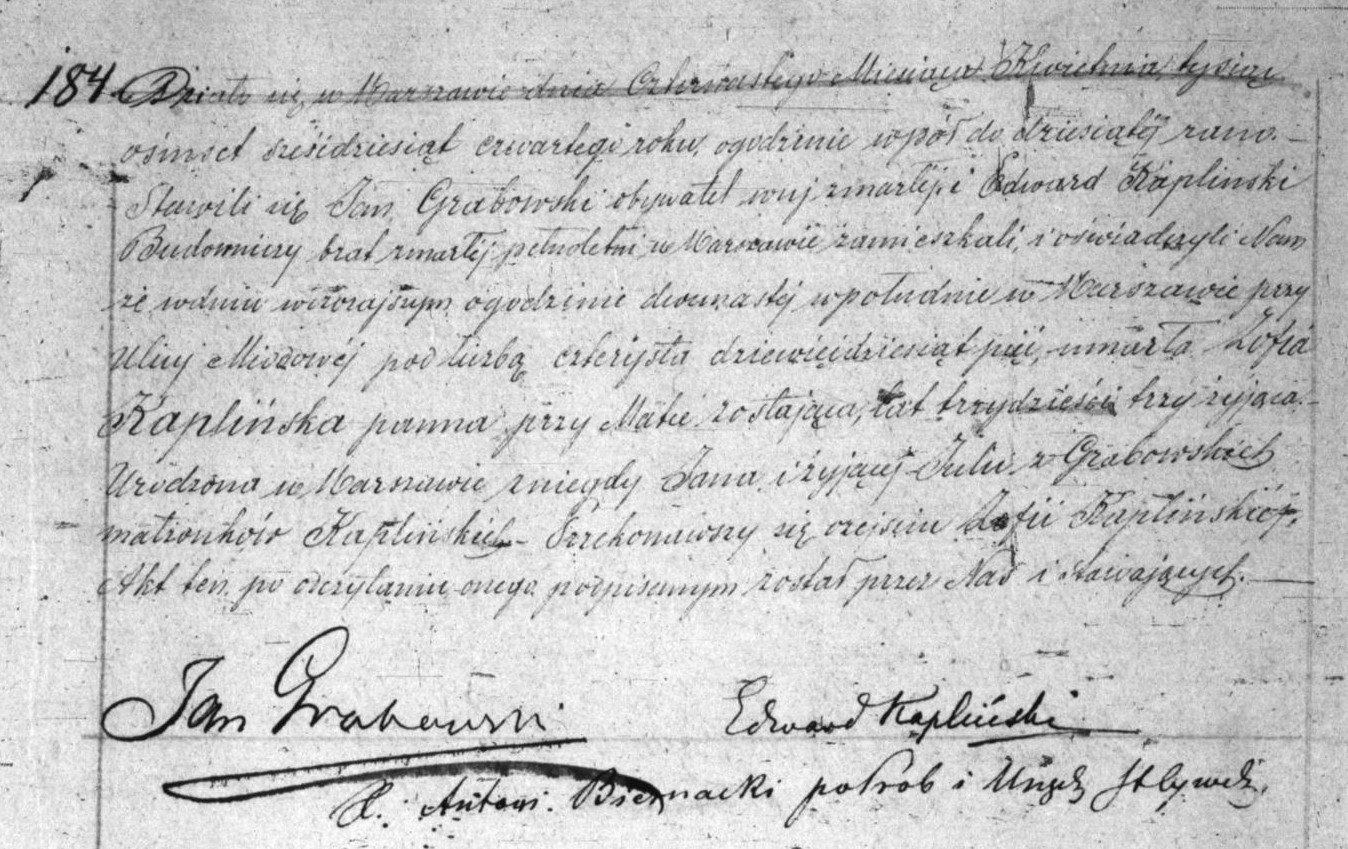 184 Działo się w Warszawie dnia Czternastego Miesiąca Kwietnia tysiąc
ośmset sześćdziesiąt czwartego roku, o godzinie wpół do dziesiątéj rano.–
Stawili się Jan Grabowski obywatel wuj zmarłéj i Edward Kapliński
Budowniczy brat zmarłéj pełnoletni w Warszawie zamieszkali, i oświadczyli Nam
że w dniu wczorajszym o godzinie dwunastéj w południe w Warszawie przy
Ulicy Miodowéj pod liczbą czterysta dziewięćdziesiąt pięć, umarła Zofia
Kaplińska panna przy Matce zostająca, lat trzydzieści trzy żyjąca.–
Urodzona w Warszawie z niegdy Jana i żyjącéj Julii z Grabowskich
małżonków Kaplińskich – Przekonawszy się o zejściu Zofii Kaplińskiéj,
Akt ten po odczytaniu onego podpisanym został przez Nas i stawających.–
Jan Grabowski Edward Kapliński
X. Antoni Biernacki i